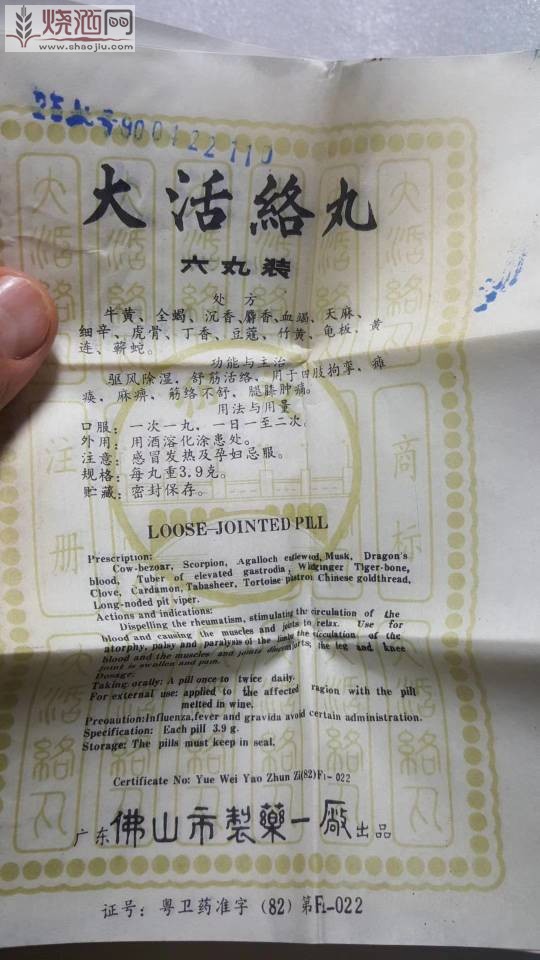 烧酒网
www.shaojiu.com
900422110
大活絡丸
六丸装
处方
牛黄、全蝎、沉香、麝香、血竭、天麻、
细辛、虎骨、丁香、豆蔻、竹黄、龟板、黄
连、蕲蛇。
功能与主治
驱风除湿，舒筋活络，用于四肢拘挛，瘫
痪，麻痹，筋络不舒，腿膝肿痛。
用法与用量
口服：一次一丸，一日一至二次。
外用：用酒溶化涂患处。
注意：感冒发热及孕妇忌服。
规格：每丸重3.9克。
贮藏：密封保存。
注册
商标
LOOSE-JOINTED PILL
Prescription:
Cow-bezoar, Scorpion, Agalloch eaglewood, Musk, Dragon's
blood, Tuber of elevated gastrodia, Wildginger Tiger-bone,
Clove, Cardamon, Tabasheer, Tortoise plastron Chinese goldthread,
Long-noded pit viper.
Actions and indications:
Dispelling the rheumatism, stimulating the circulation of the
blood and causing the muscles and joints to relax. Use for
atorphy, palsy and paralysis of the limbs the circulation of the
blood and the muscles and joints discomforts; the leg and knee
joint is swollen and pain.
Dosage:
Taking orally: A pill once to twice daily.
For external use: applied to the affected ragion with the pill
melted in wine.
Preoaution:Influenza,fever and gravida avoid certain administration.
Specification: Each pill 3.9 g.
Storage: The pills must keep in seal.
Certificate No: Yue Wei Yao Zhun Zi(82)F1-022
广东佛山市製藥一廠出品
证号：粤卫药准字(82)第F1-022